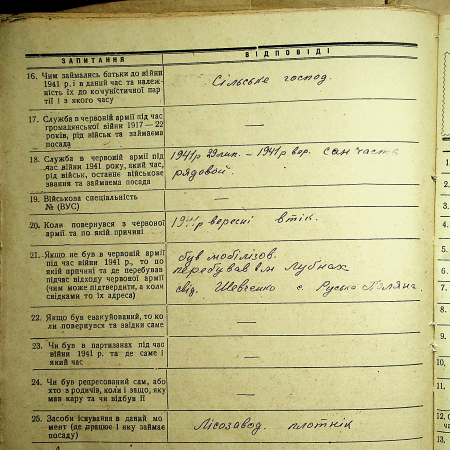 ЗАПИТАННЯ
ВІДПОВІДІ
16. Чим займались батьки до війни
1941 р. і в даний час та належ-
ність їх до комуністичної пар-
тії і з якого часу
Сільське господ.
17. Служба в червоній армії під час
громадянської війни 1917—22
років, рід військ та займаєма
посада
—
18. Служба в червоній армії під
час війни 1941 року, який час,
рід військ, останнє військове
звання та займаєма посада
1941р 29 лип. – 1941р вер. сан часть
рядовой.
19. Військова спеціальність
№ (ВУС)
—
20. Коли повернувся з червоної
армії та по якій причині
1941р вересні втік.
21. Якщо не був в червоній армії
під час війни 1941 р., то по
якій причині та де перебував
під час відходу червоної армії
(чим може підтвердити, а коли
свідками то їх адреса)
був мобілізов.
перебував в м Лубнах
свід. Шевченко с. Руська Поляна
22. Якщо був евакуйований, то ко-
ли повернувся та звідки саме
—
23. Чи був в партизанах під час
війни 1941 р. та де саме і
який час
—
24. Чи був репресований сам, або
хто з родичів, коли і защо, яку
мав кару та чи відбув її
—
25. Засоби існування в даний мо-
мент (де працює і яку займає
посаду)
Лісозавод. плотнік
1.
2.
3.
4.
5.
6.
7.
8.
9.
10.
11.
12.
13.